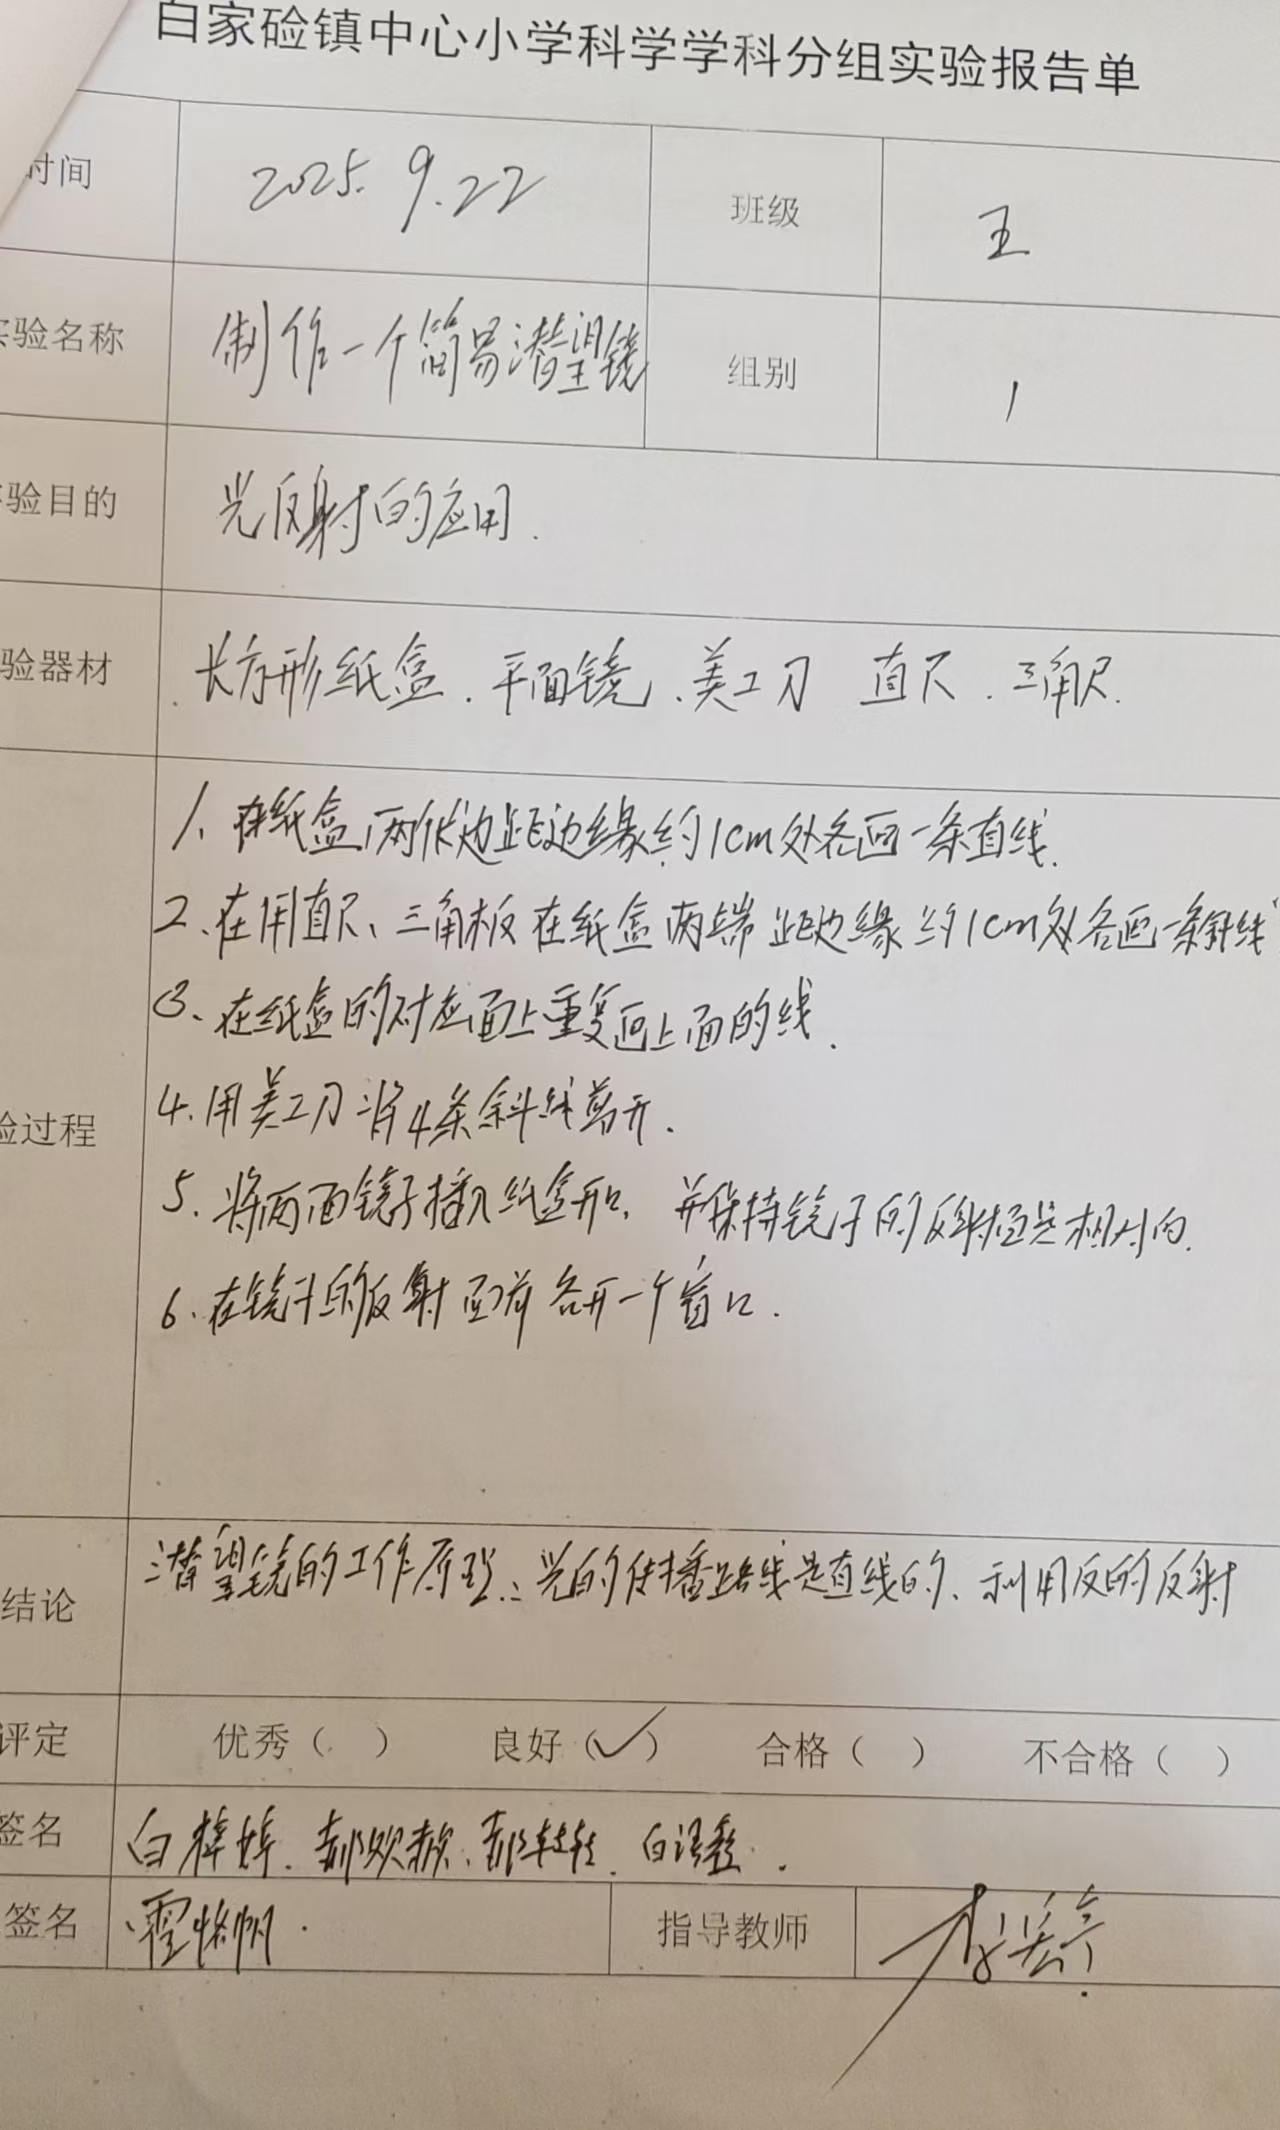 白家硷镇中心小学科学学科分组实验报告单
时间 2025.9.22 班级 五
实验名称 制作一个简易潜望镜 组别 1
实验目的 光反射的应用.
验器材 长方形纸盒、平面镜、美工刀 直尺、三角尺.
1、在纸盒两侧边距边缘约1cm处各画一条直线.
2、在用直尺、三角板在纸盒两端距边缘约1cm处各画一条斜线
3、在纸盒的对应面上重复画上面的线.
验过程 4.用美工刀将4条斜线割开.
5、将两面镜子插入纸盒开口,并保持镜子的反射面是相对的.
6、在镜子的反射面前各开一个窗口.
结论 潜望镜的工作原理:光的传播路线是直线的、利用反的反射
评定 优秀( ) 良好(✓) 合格( ) 不合格( )
签名 白 郝 郝 白
签名 霍 指导教师 李